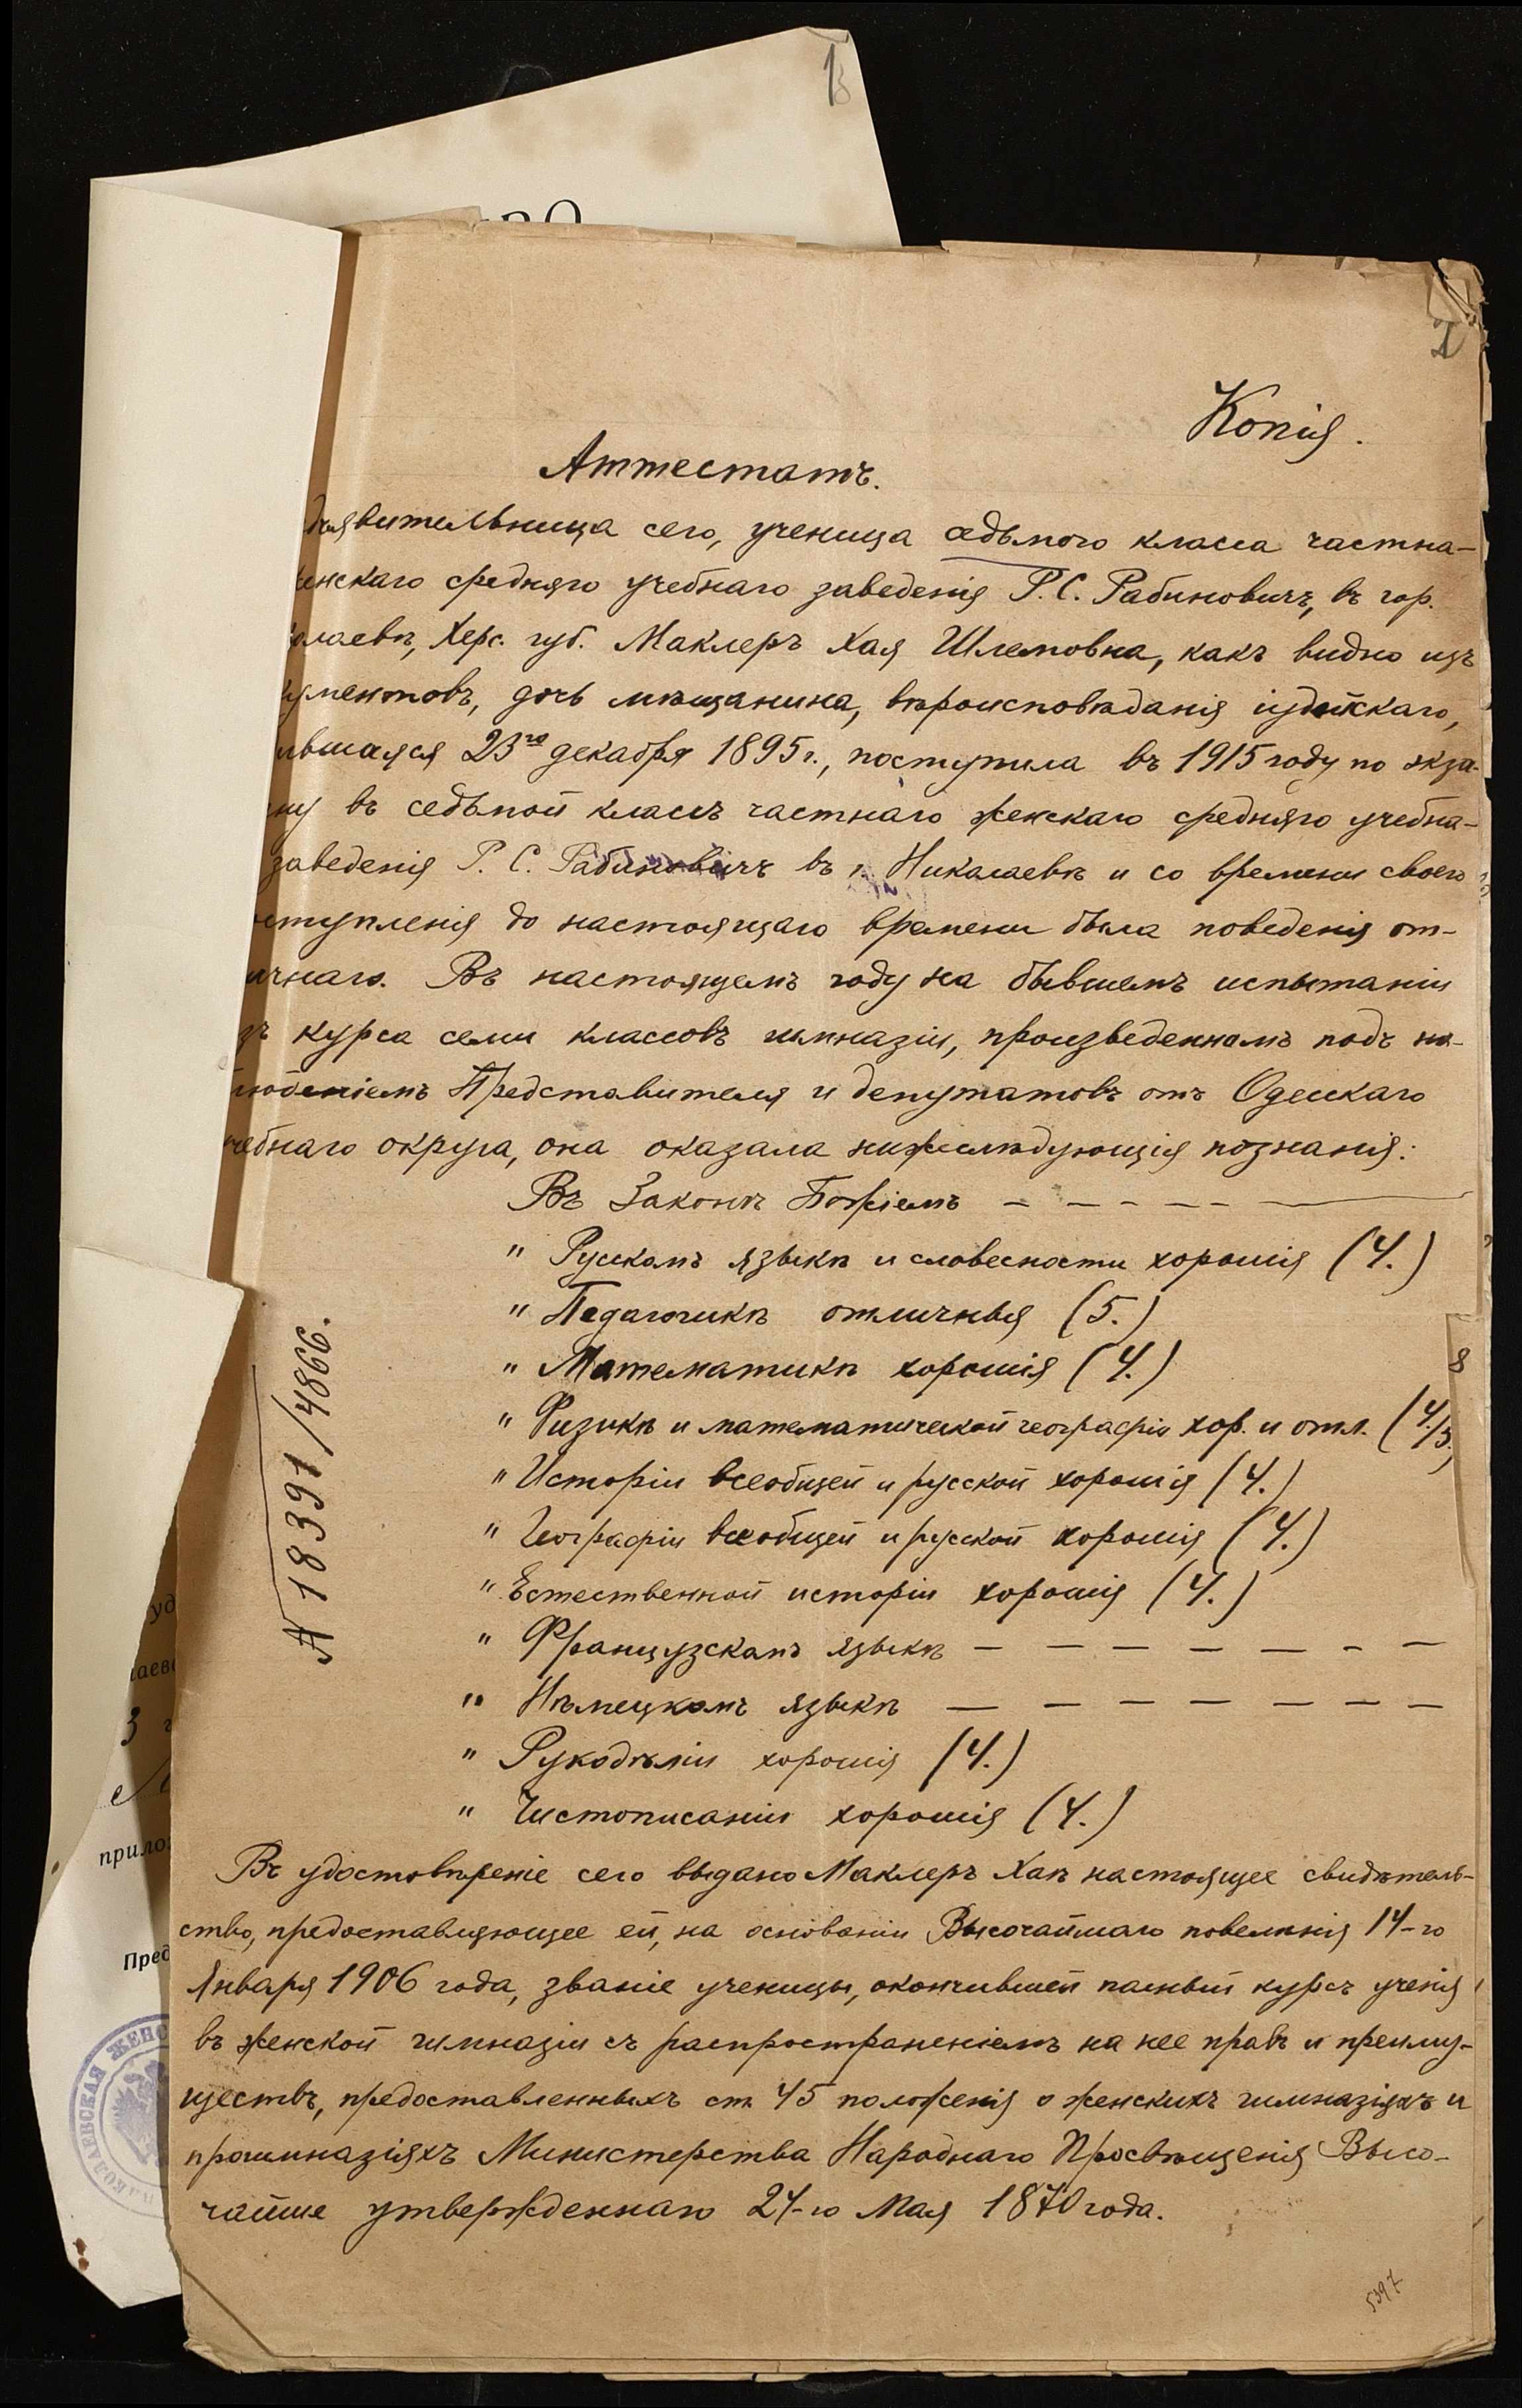 Копія.
Аттестатъ.
ъявительница сего, ученица седьмого класса частна-
енскаго средняго учебнаго заведенія Р. С. Рабиновичъ, въ гор.
олаевѣ, Херс. губ. Маклеръ Хая Шлемовна, какъ видно изъ
ументовъ, дочь мѣщанина, вѣроисповѣданія іудейскаго,
ившаяся 23го декабря 1895 г., поступила въ 1915 году по экза-
ну въ седьмой классъ частнаго женскаго средняго учебна-
заведенія Р. С. Рабиновичъ въ г. Николаевѣ и со времени своего
ступленія до настоящаго времени была поведенія от-
ичнаго. Въ настоящемъ году на бывшемъ испытаніи
зъ курса семи классовъ гимназіи, произведенномъ подъ на-
блюденіемъ Представителя и депутатовъ отъ Одесскаго
чебнаго округа, она оказала нижеслѣдующія познанія:
Въ Законѣ Божіемъ — — — — —
" Русскомъ языкѣ и словесности хорошія (4.)
" Педагогикѣ отличныя (5.)
" Математикѣ хорошія (4.)
" Физикѣ и математической географіи хор. и отл. (4/5.
" Исторіи всеобщей и русской хорошія (4.)
" Географіи всеобщей и русской хорошія (4.)
" Естественной исторіи хорошія (4.)
" Французскомъ языкѣ — — — — — — —
" Нѣмецкомъ языкѣ — — — — — — —
" Рукодѣліи хорошія (4.)
" Чистописаніи хорошія (4.)
Въ удостовѣреніе сего выдано Маклеръ Хаѣ настоящее свидѣтель-
ство, предоставляющее ей, на основаніи Высочайшаго повелѣнія 14-го
Января 1906 года, званіе ученицы, окончившей полный курсъ ученія
въ женской гимназіи съ распространеніемъ на нее правъ и преиму-
ществъ, предоставленныхъ ст. 45 положенія о женскихъ гимназіяхъ и
прогимназіяхъ Министерства Народнаго Просвѣщенія Высо-
чайше утвержденнаго 24-го Мая 1870 года.
№ 18391/4866.
5397
уд
лаев
3
прило
Пред
КОЛАЕВСКАЯ ЖЕНС
8